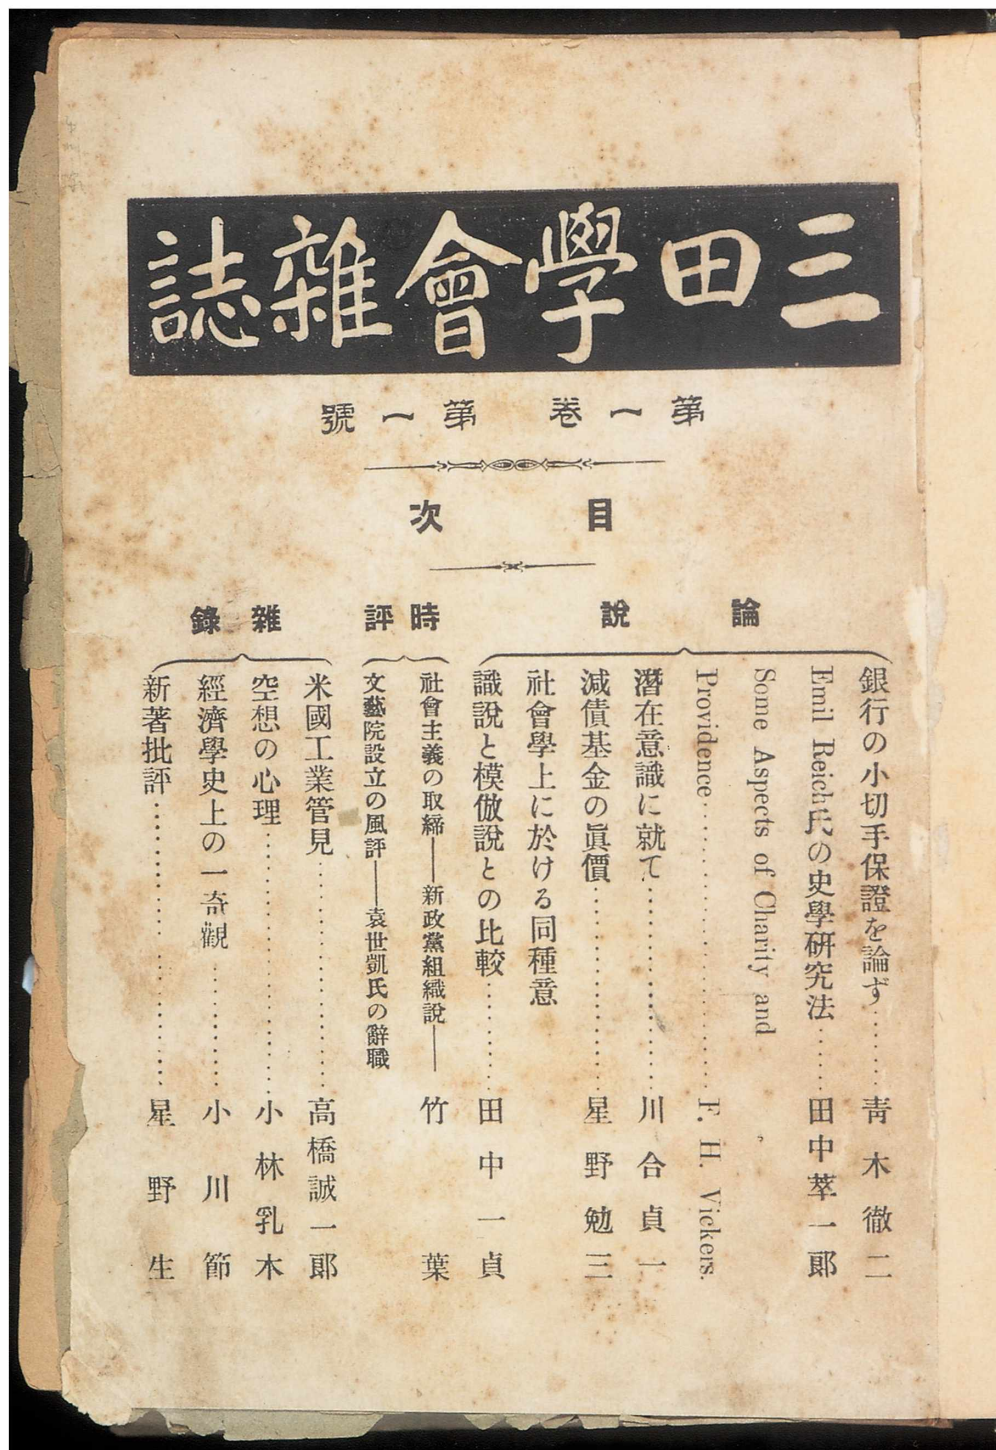 三田學會雜誌
第一卷 第一號
目次
論說
銀行の小切手保證を論ず………靑木徹二
Emil Reich氏の史學硏究法………田中萃一郞
Some Aspects of Charity and
Providence………F. H. Vickers.
潛在意識に就て………川合貞一
減債基金の眞價………星野勉三
社會學上に於ける同種意
識說と模倣說との比較………田中一貞
時評
社會主義の取締――新政黨組織說――
文藝院設立の風評――袁世凱氏の辭職
竹葉
雜錄
米國工業管見………高橋誠一郞
空想の心理………小林乳木
經濟學史上の一奇觀………小川節
新著批評………星野生